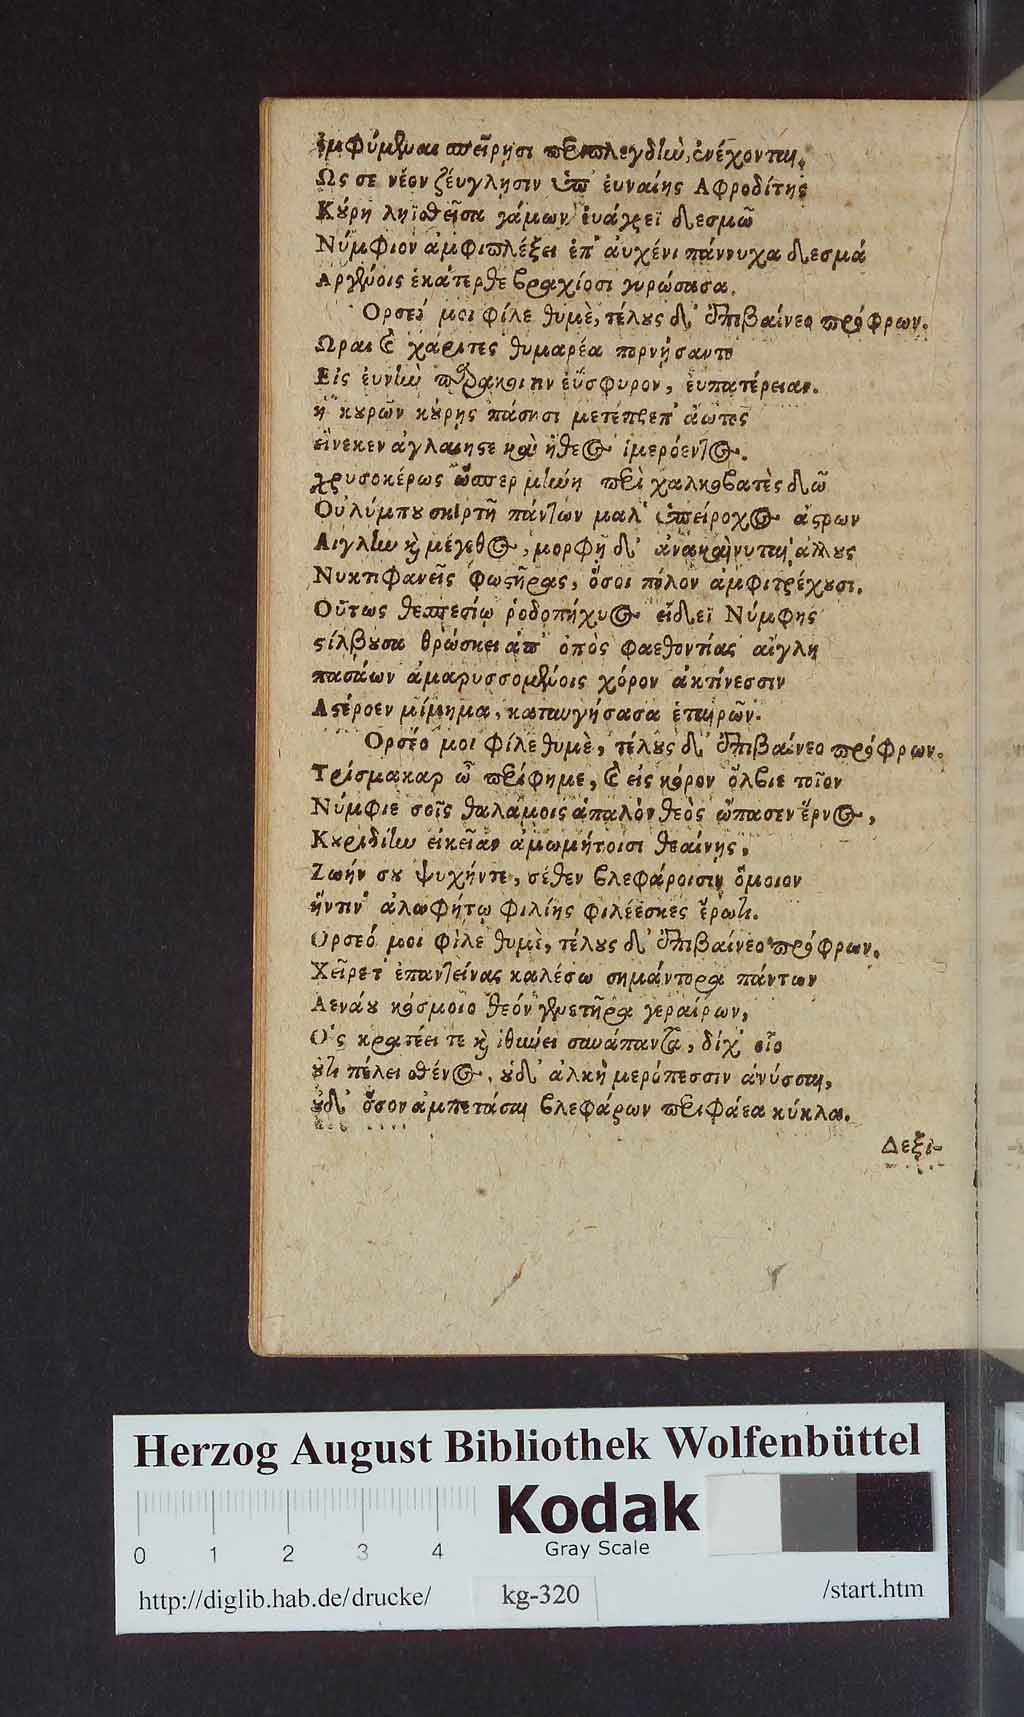 ἐμφύμεναι σπείρησι περιπλεγδίω, ἐνέχονται.
Ως σε νέον ζεύγλησιν ὑπ' ἐυναίης Αφροδίτης
Κύρη ληϊσθεῖσα γάμων ἐυάγρεϊ δεσμῷ
Νύμφιον ἀμφιπλέξει ἐπ' ἀυχένι πάννυχα δεσμά
Αργενοῖς ἑκάτερθε βραχίοσι γυρώσασα.
Ορσεό μοι φίλε θυμὲ, τέλους δ' ἐπιβαίνεο πρόφρων.
Ωραι & χάριτες θυμαρέα πορνήσαντο
Εἰς ἐυνὴν παράκοιτιν ἐΰσφυρον, ἐυπατέρειαν.
ἡ κουρῶν κούρης πάσησι μετέπρεπ' ἄωτος
εἵνεκεν ἀγλαΐης τε καὶ ἤθεος ἱμερόεντος.
χρυσοκέρως ὥσπερ μήνη περὶ χαλκοβατὲς δῶ
Οὐλύμπου σκιρτῇ πάντων μαλ' ὑπείροχος ἄστρων
Αιγλην καὶ μέγεθος, μορφῇ δ' ἀνακαίνυται ἄλλους
Νυκτιφανεῖς φωστῆρας, ὅσοι πόλον ἀμφιτρέχουσι.
Οὕτως θεσπεσίῳ ῥοδοπήχυος εἴδεϊ Νύμφης
στίλβουσα θρώσκει ἀπ' ὀπὸς φαεθοντίας αἴγλη
πασάων ἀμαρυσσομένοις χόρον ἀκτίνεσσιν
Αστέροεν μίμημα, καταυγήσασα ἑταιρῶν.
Ορσέο μοι φίλε θυμὲ, τέλους δ' ἐπιβαίνεο πρόφρων.
Τρίσμακαρ ὦ περίφημε, & εἰς κόρον ὄλβιε τοῖον
Νύμφιε σοῖς θαλάμοις ἁπαλὸν θεὸς ὤπασεν ἔρνος,
Κουριδίην εἰκεῖαν ἀμωμήτοισι θεαίνης,
Ζωήν σου ψυχήντε, σέθεν βλεφάροισιν ὅμοιον
ἥντιν' ἀλωφήτῳ φιλίης φιλέεσκες ἔρωτι.
Ορσεό μοι φίλε θυμὲ, τέλους δ' ἐπιβαίνεο πρόφρων.
Χεῖρετ' ἐπαντείνας καλέσω σημάντορα πάντων
Αενάου κόσμοιο θεόν γενετῆρα γεραίρων,
Ὃς κρατέει τε καὶ ἰθύνει συνάπαντα, δίχ' οἷο
οὔτι πέλει σθένος, οὐδ' ἀλκὴ μερόπεσσιν ἀνύσσαι,
οὐδ' ὅσον ἀμπετάσαι βλεφάρων περιφάεα κύκλα.
Δεξι-
Herzog August Bibliothek Wolfenbüttel
Kodak
Gray Scale
0 1 2 3 4
http://diglib.hab.de/drucke/ kg-320 /start.htm